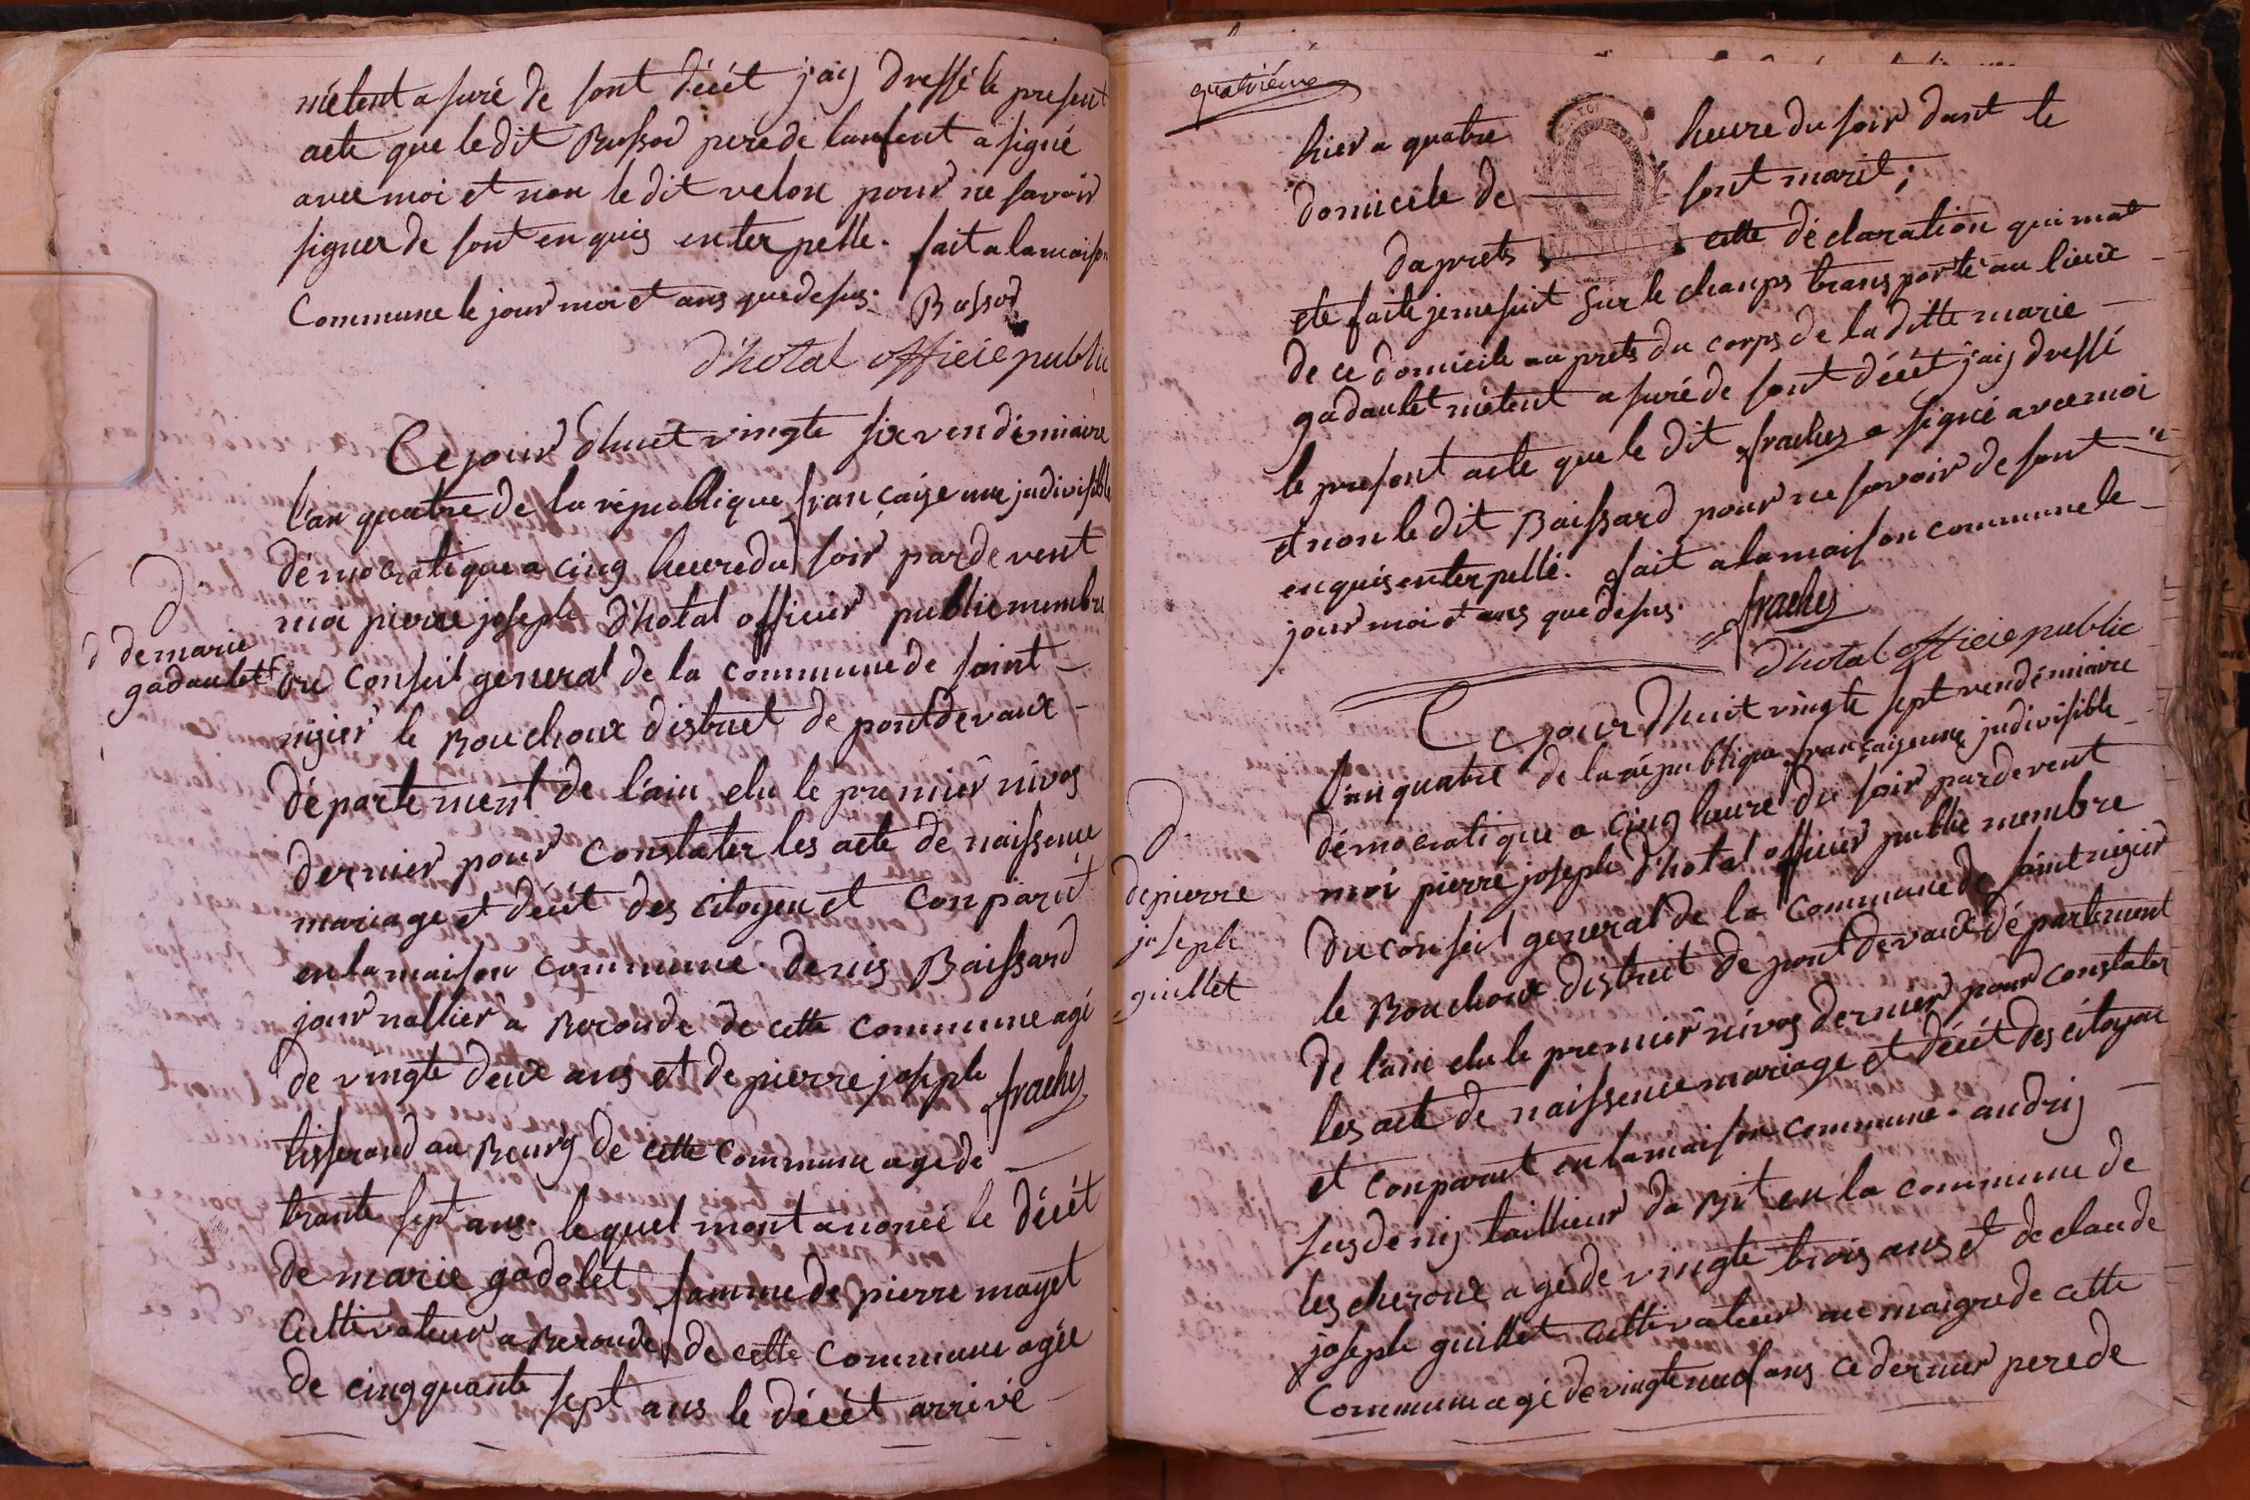 métent asuré de sont décét j'aij dressé le present
acte que le dit Bussod pere de lanfent a signé
avec moi et non le dit velon pour ne savoir
signer de sont enquis enterpelle. fait a la maison
Commune le jour moi et ans que desus. Bussod
d'hotal officie public
Ce jour dhuit vingte six vendémiaire
l'an quatre de la république française une jndivisible
démocratique a cinq heure du soir pardevent
moi pierre joseph d'hotal officier public membre
d
d de marie
gadaulet
du Conseil general de la commune de saint
nizier le Bouchoux district de pontdevaux
département de l'ain elu le premier nivos
dernier pour Constater les acte de naissence
mariage et décét des citoyen et Conparut
en la maison commune. denis Baissard
journallier a Beronde de cette Commune agé
de vingte deux ans et de pierre joseph frachej
tisserand au Bourg de cette commune age de
trante sept ans. le quel mont anoncé le décét
de marie gadolet famme de pierre mayet
Cultivateur a Beronde de cette Commune agée
de cinqquante sept ans le décét arrivé
quatriéme
hier a quatre heure du soir dant le
domicile de sont marit;
daprets cette déclaration qui mat
ete faite je me suit sur le champs transporté au lieux
de ce domicile au prets du corps de la ditte marie
gadaulet métent asuré de sont décét j'aij dressé
le present acte que le dit frachej a signé avec moi
et non le dit Baissard pour ne savoir de sont
enquis enterpellé. fait a la maison commune le
jour moi et ans que desus. frachej
d'hotal officie public
Ce jour dhuit vingte sept vendémiaire
l'an quatre de la république française une jndivisible
démocratique a cinq heure du soir pardevent
moi pierre joseph d'hotal officier public membre
d
de pierre
joseph
guillet
du conseil general de la Commune de saint nizier
le Bouchoux district de pont devaux département
de l'ain elu le premier nivos dernier pour constater
les acte de naissence mariage et décét des citoyen
et conparut en la maison commune. andrij
susdenij taillieur da Bit en la commune de
lescheroux agé de vingte trois ans et de claude
joseph guillet cultivateur au maigre de cette
Commune agé de vingte neuf ans ce dernier pere de